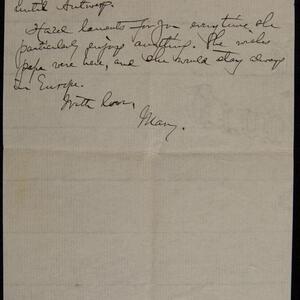 until Antwerp.
Hazel laments for you everytime she
particularly enjoys anything. She wishes
papa were here, and she would stay always
in Europe.
With love,
Mary.